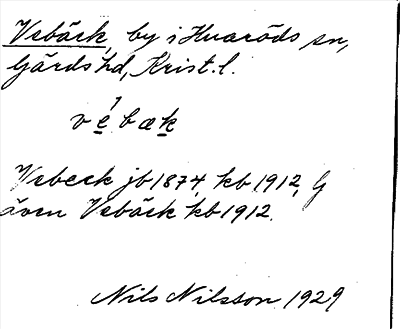 Vebäck, by i Huaröds sn,
Gärds hd, Krist. l.
vé bæk
Vebeck jb 1874, kb 1912, G
även Vebäck kb 1912.
Nils Nilsson 1929